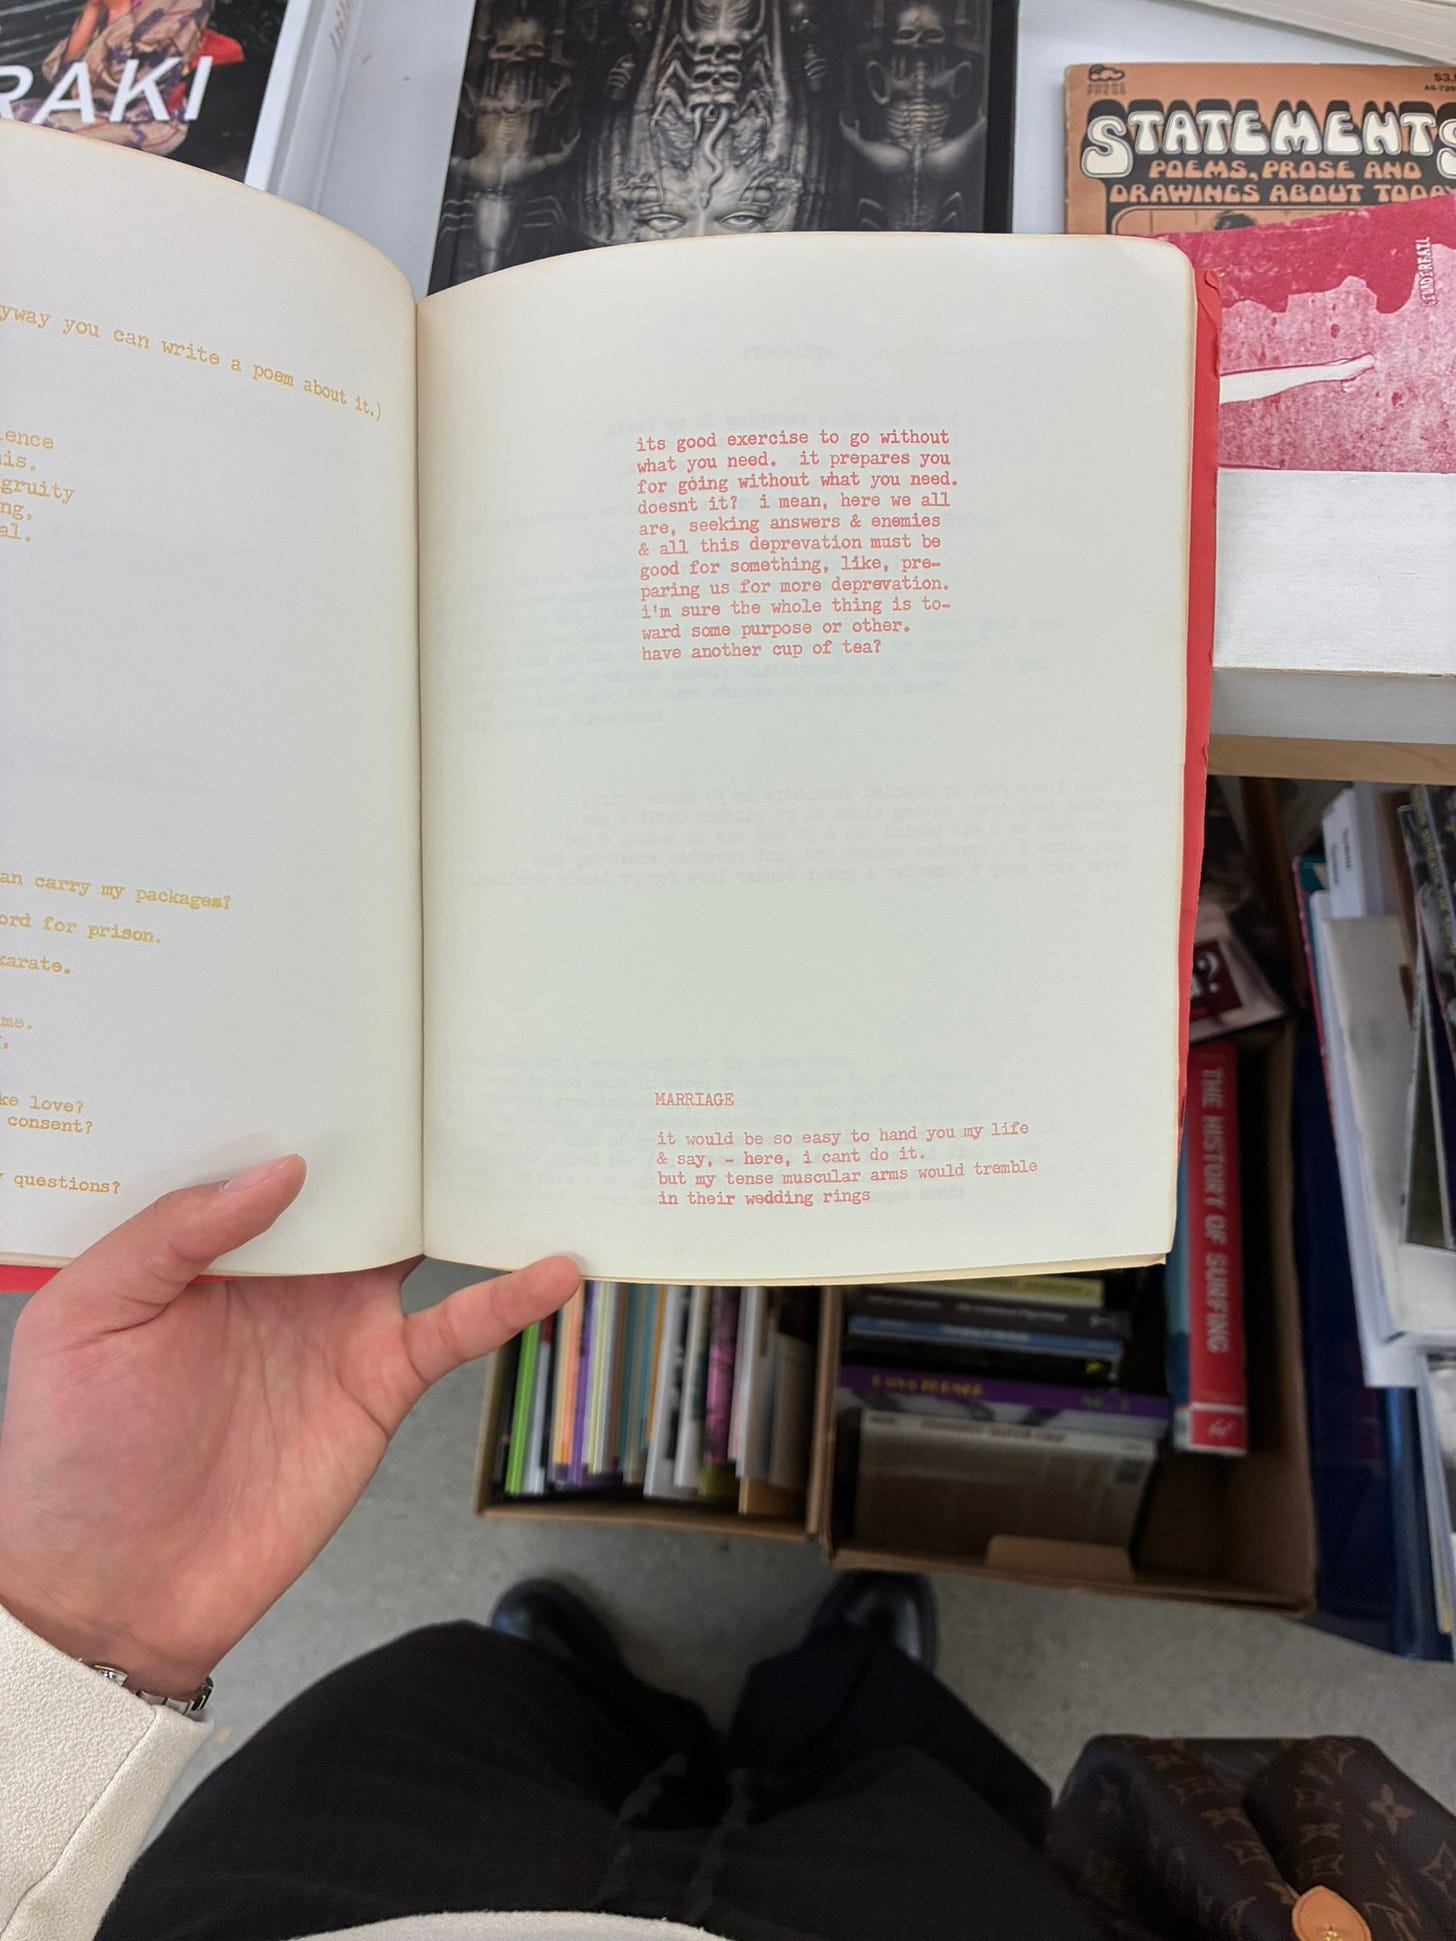 RAKI
STATEMENTS
POEMS, PROSE AND
DRAWINGS ABOUT
you can write a poem about it.)
an carry my packages?
for prison.
karate.
me.
love?
consent?
questions?
its good exercise to go without
what you need.  it prepares you
for going without what you need.
doesnt it?  i mean, here we all
are, seeking answers & enemies
& all this deprevation must be
good for something, like, pre-
paring us for more deprevation.
i'm sure the whole thing is to-
ward some purpose or other.
have another cup of tea?
MARRIAGE
it would be so easy to hand you my life
& say, - here, i cant do it.
but my tense muscular arms would tremble
in their wedding rings
THE HISTORY OF SURFING